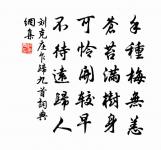 手種梅無恙
蒼苔滿樹身
可憐開較早
不待遠歸人
刘克庄乍歸九首詞典
網集